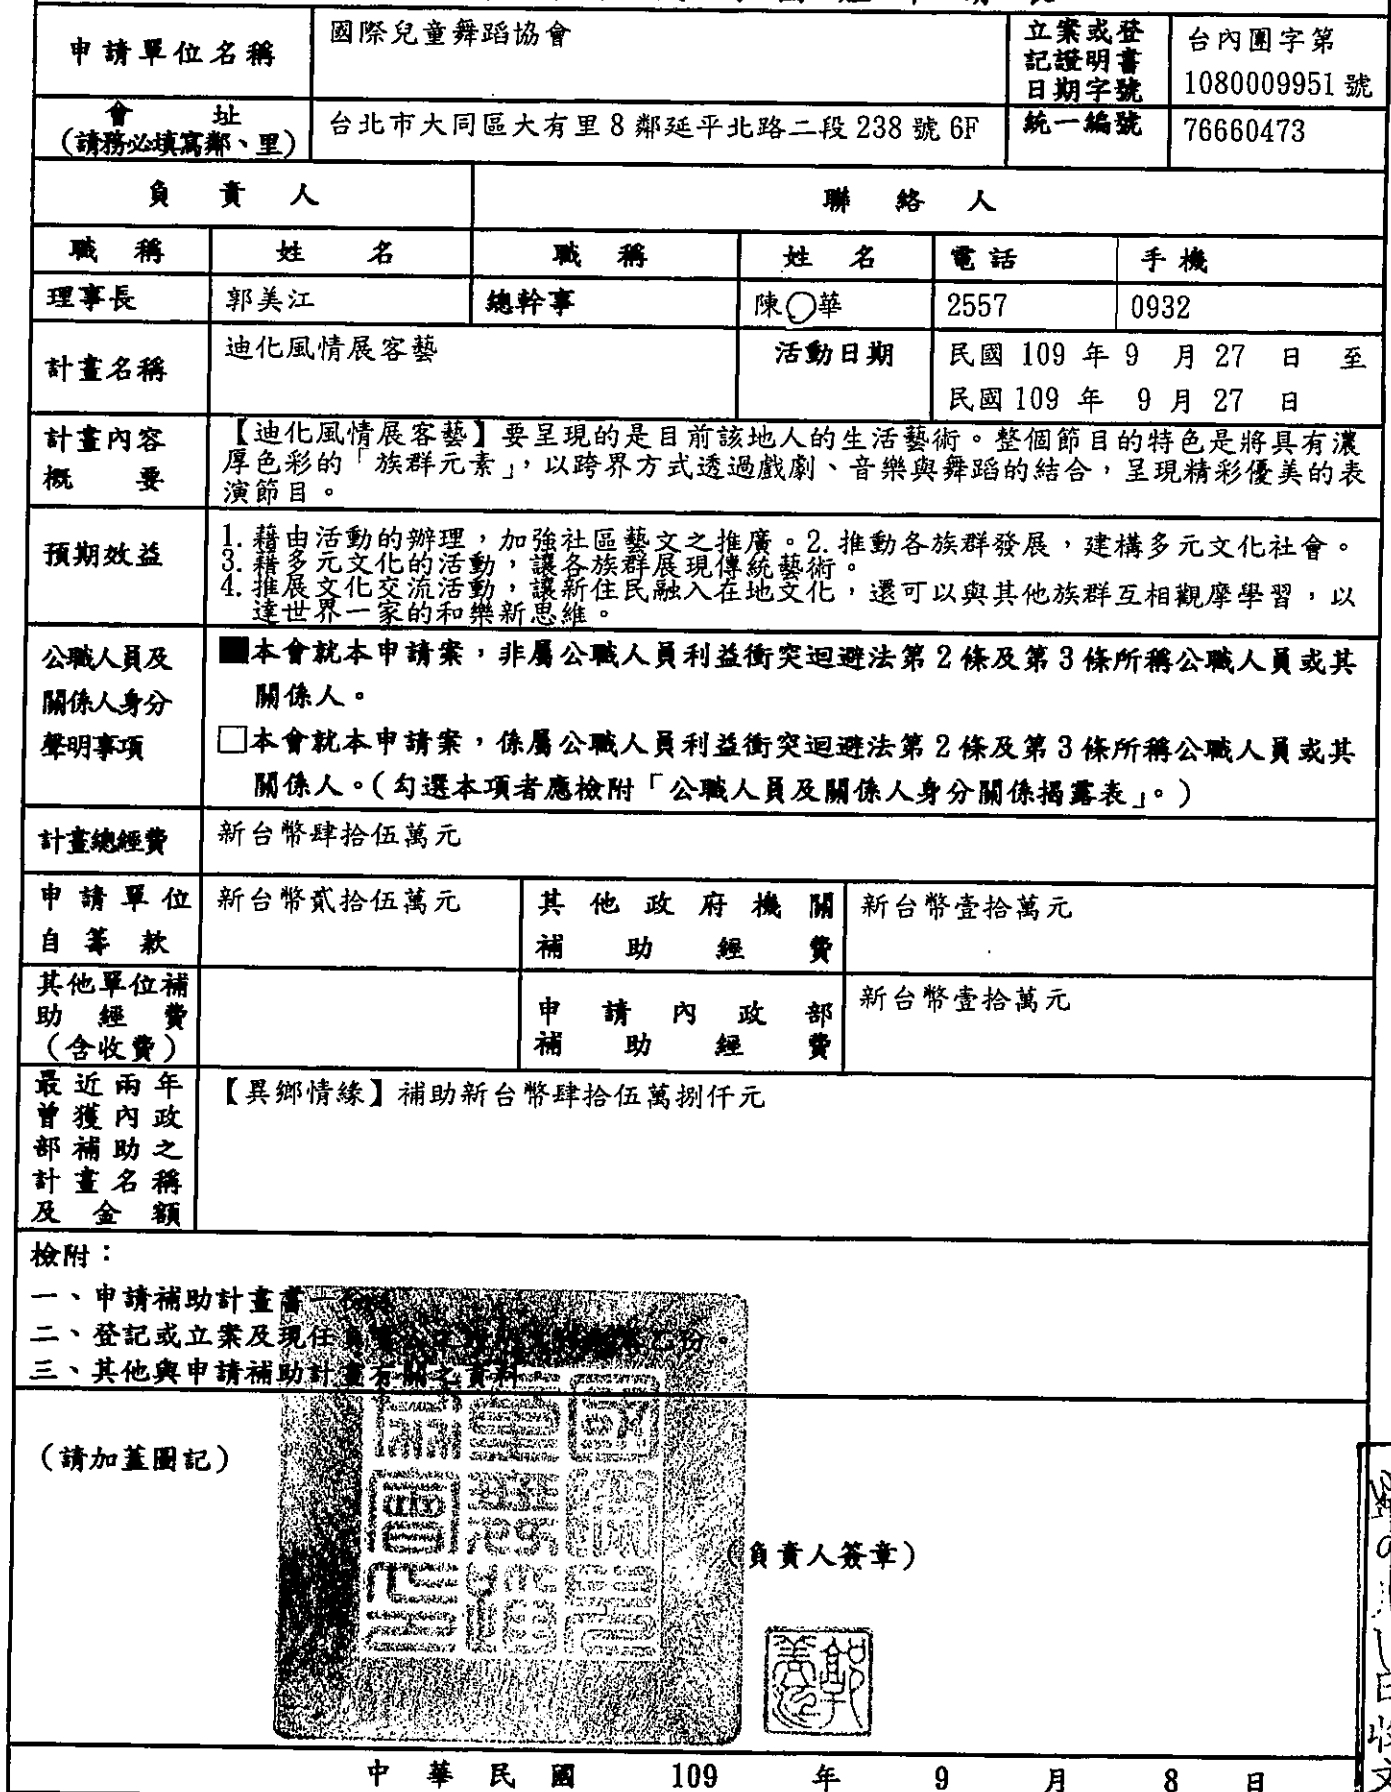 申請單位名稱
國際兒童舞蹈協會
立案或登
記證明書
日期字號
台內團字第
1080009951號
會址
(請務必填寫鄰、里)
台北市大同區大有里8鄰延平北路二段238號6F
統一編號
76660473
負責人
聯絡人
職稱 姓名 職稱 姓名 電話 手機
理事長 郭美江 總幹事 陳○華 2557 0932
計畫名稱
迪化風情展客藝
活動日期
民國109年9月27日至
民國109年9月27日
計畫內容
概要
【迪化風情展客藝】要呈現的是目前該地人的生活藝術。整個節目的特色是將具有濃
厚色彩的「族群元素」,以跨界方式透過戲劇、音樂與舞蹈的結合,呈現精彩優美的表
演節目。
預期效益
1.藉由活動的辦理,加強社區藝文之推廣。2.推動各族群發展,建構多元文化社會。
3.藉多元文化的活動,讓各族群展現傳統藝術。
4.推展文化交流活動,讓新住民融入在地文化,還可以與其他族群互相觀摩學習,以
達世界一家的和樂新思維。
公職人員及
關係人身分
聲明事項
■本會就本申請案,非屬公職人員利益衝突迴避法第2條及第3條所稱公職人員或其
關係人。
□本會就本申請案,係屬公職人員利益衝突迴避法第2條及第3條所稱公職人員或其
關係人。(勾選本項者應檢附「公職人員及關係人身分關係揭露表」。)
計畫總經費
新台幣肆拾伍萬元
申請單位
自籌款
新台幣貳拾伍萬元
其他政府機關
補助經費
新台幣壹拾萬元
其他單位補
助經費
(含收費)
申請內政部
補助經費
新台幣壹拾萬元
最近兩年
曾獲內政
部補助之
計畫名稱
及金額
【異鄉情緣】補助新台幣肆拾伍萬捌仟元
檢附:
一、申請補助計畫書一份
二、登記或立案及現任
三、其他與申請補助計畫有關之資料
(請加蓋圖記)
(負責人簽章)
中華民國109年9月8日